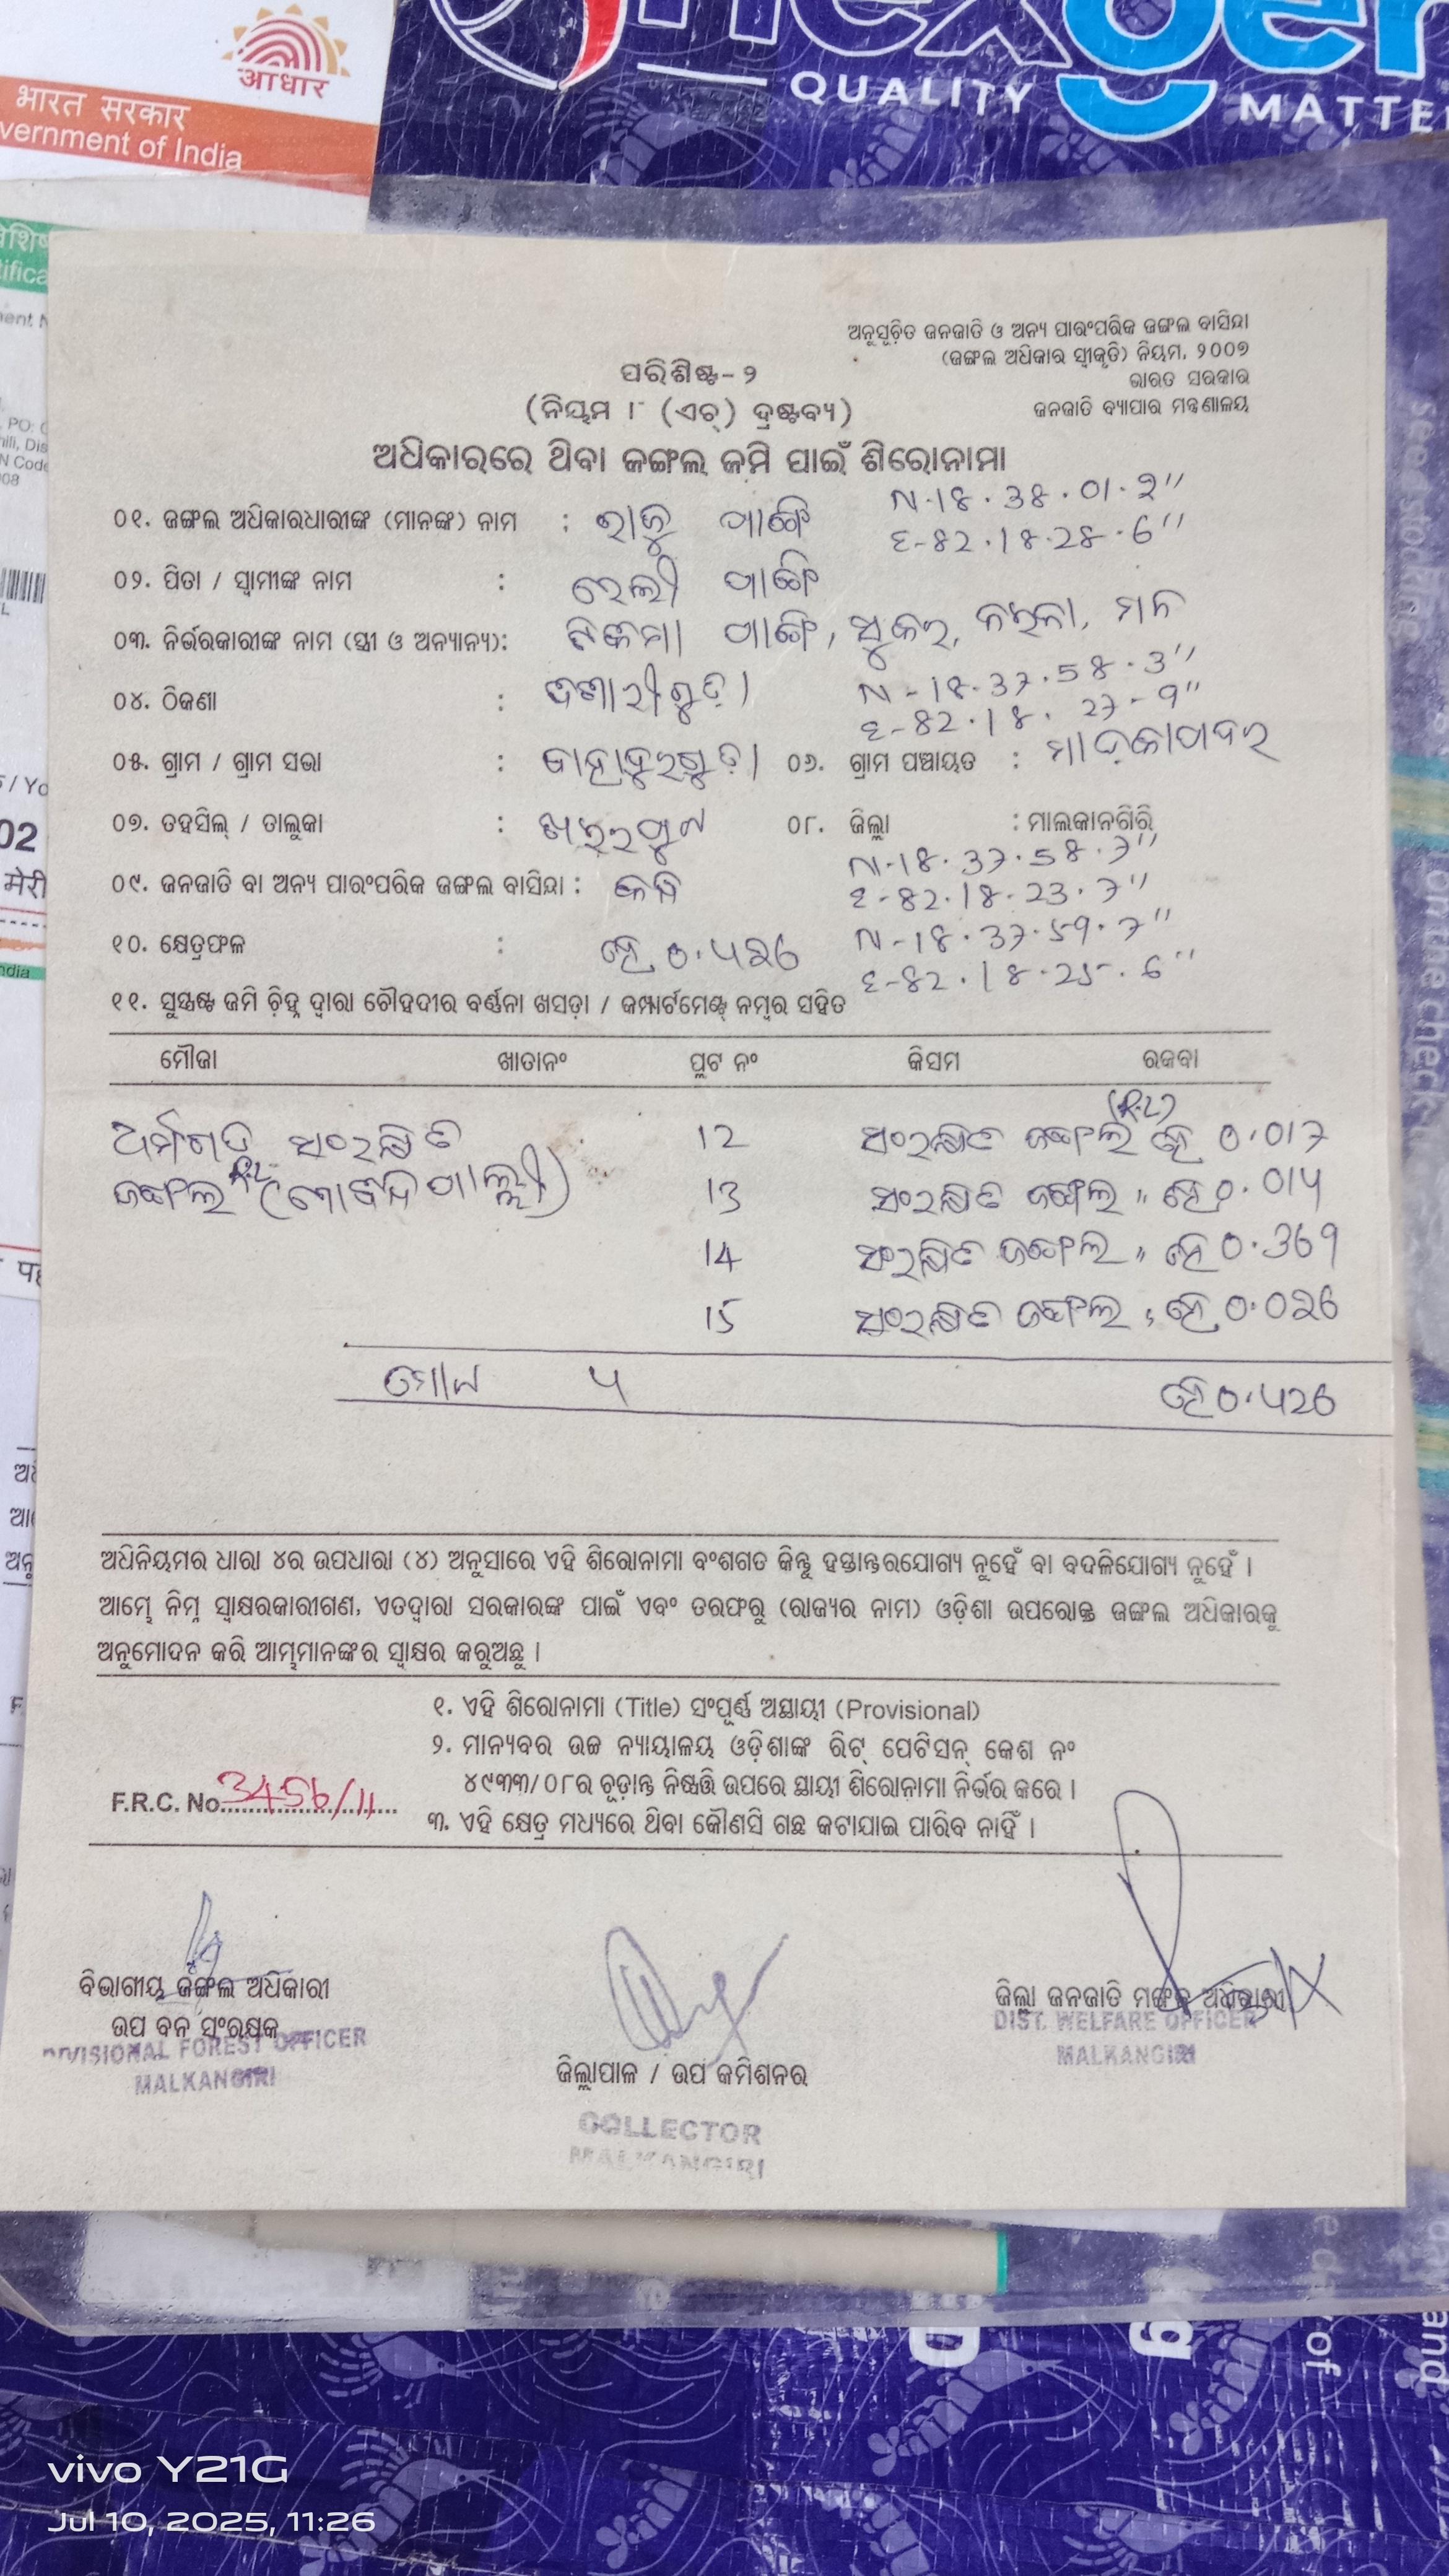 आधार
भारत सरकार
vernment of India
nexgen
QUALITY MATTE
ଅନୁସୂଚିତ ଜନଜାତି ଓ ଅନ୍ୟ ପାରଂପରିକ ଜଙ୍ଗଲ ବାସିନ୍ଦା
(ଜଙ୍ଗଲ ଅଧିକାର ସ୍ୱୀକୃତି) ନିୟମ, ୨୦୦୭
ଭାରତ ସରକାର
ଜନଜାତି ବ୍ୟାପାର ମନ୍ତ୍ରଣାଳୟ
ପରିଶିଷ୍ଟ- ୨
(ନିୟମ ୮ (ଏଚ୍) ଦ୍ରଷ୍ଟବ୍ୟ)
ଅଧିକାରରେ ଥିବା ଜଙ୍ଗଲ ଜମି ପାଇଁ ଶିରୋନାମା
N-18.38.01.2"
୦୧. ଜଙ୍ଗଲ ଅଧିକାରଧାରୀଙ୍କ (ମାନଙ୍କ) ନାମ : ରାଜୁ ପାଙ୍ଗି
E-82.18.28.6"
୦୨. ପିତା / ସ୍ୱାମୀଙ୍କ ନାମ : ରେଲୀ ପାଙ୍ଗି
୦୩. ନିର୍ଭରକାରୀଙ୍କ ନାମ (ସ୍ତ୍ରୀ ଓ ଅନ୍ୟାନ୍ୟ): ପାଙ୍ଗି,
N-18.37.58.3"
୦୪. ଠିକଣା :
E-82.18.27-9"
୦୫. ଗ୍ରାମ / ଗ୍ରାମ ସଭା : ବାହାଦୁରଗୁଡ଼ା ୦୬. ଗ୍ରାମ ପଞ୍ଚାୟତ : ମାଦ୍କାପାଦର
୦୭. ତହସିଲ୍ / ତାଲୁକା : ଖଇରପୁଟ ୦୮. ଜିଲ୍ଲା : ମାଲକାନଗିରି
N-18.37.58.7"
୦୯. ଜନଜାତି ବା ଅନ୍ୟ ପାରଂପରିକ ଜଙ୍ଗଲ ବାସିନ୍ଦା :
E-82.18.23.7"
N-18.37.59.7"
୧୦. କ୍ଷେତ୍ରଫଳ : ହେ 0.୪26
E-82.18.25.6"
୧୧. ସୁସ୍ପଷ୍ଟ ଜମି ଚ଼ିହ୍ନ ଦ୍ୱାରା ଚୌହଦୀର ବର୍ଣ୍ଣନା ଖସଡ଼ା / କମ୍ପାର୍ଟମେଣ୍ଟ୍ ନମ୍ବର ସହିତ
ମୌଜା ଖାତାନଂ ପ୍ଲଟ ନଂ କିସମ ରକବା
ସଂରକ୍ଷିତ 12 ସଂରକ୍ଷିତ ଜଙ୍ଗଲ ହେ 0.017
ଜଙ୍ଗଲ 13 ସଂରକ୍ଷିତ ଜଙ୍ଗଲ " ହେ 0.01୪
14 ସଂରକ୍ଷିତ ଜଙ୍ଗଲ " ହେ 0.369
15 ସଂରକ୍ଷିତ ଜଙ୍ଗଲ " ହେ 0.026
ମୋଟ ୪ ହେ 0.୪26
ଅଧିନିୟମର ଧାରା ୪ର ଉପଧାରା (୪) ଅନୁସାରେ ଏହି ଶିରୋନାମା ବଂଶଗତ କିନ୍ତୁ ହସ୍ତାନ୍ତରଯୋଗ୍ୟ ନୁହେଁ ବା ବଦଳିଯୋଗ୍ୟ ନୁହେଁ ।
ଆମ୍ଭେ ନିମ୍ନ ସ୍ୱାକ୍ଷରକାରୀଗଣ, ଏତଦ୍ୱାରା ସରକାରଙ୍କ ପାଇଁ ଏବଂ ତରଫରୁ (ରାଜ୍ୟର ନାମ) ଓଡ଼ିଶା ଉପରୋକ୍ତ ଜଙ୍ଗଲ ଅଧିକାରକୁ
ଅନୁମୋଦନ କରି ଆମ୍ଭମାନଙ୍କର ସ୍ୱାକ୍ଷର କରୁଅଛୁ ।
୧. ଏହି ଶିରୋନାମା (Title) ସଂପୂର୍ଣ୍ଣ ଅସ୍ଥାୟୀ (Provisional)
୨. ମାନ୍ୟବର ଉଚ୍ଚ ନ୍ୟାୟାଳୟ ଓଡ଼ିଶାଙ୍କ ରିଟ୍ ପେଟିସନ୍ କେଶ ନଂ
୪୯୩୩/୦୮ର ଚୂଡ଼ାନ୍ତ ନିଷ୍ପତ୍ତି ଉପରେ ସ୍ଥାୟୀ ଶିରୋନାମା ନିର୍ଭର କରେ ।
F.R.C. No. 3456/11
୩. ଏହି କ୍ଷେତ୍ର ମଧ୍ୟରେ ଥିବା କୌଣସି ଗଛ କଟାଯାଇ ପାରିବ ନାହିଁ ।
ବିଭାଗୀୟ ଜଙ୍ଗଲ ଅଧିକାରୀ
ଉପ ବନ ସଂରକ୍ଷକ
DIVISIONAL FOREST OFFICER
MALKANGIRI
ଜିଲ୍ଲାପାଳ / ଉପ କମିଶନର
COLLECTOR
MALKANGIRI
ଜିଲ୍ଲା ଜନଜାତି ମଙ୍ଗଳ ଅଧିକାରୀ
DIST. WELFARE OFFICER
MALKANGIRI
vivo Y21G
Jul 10, 2025, 11:26